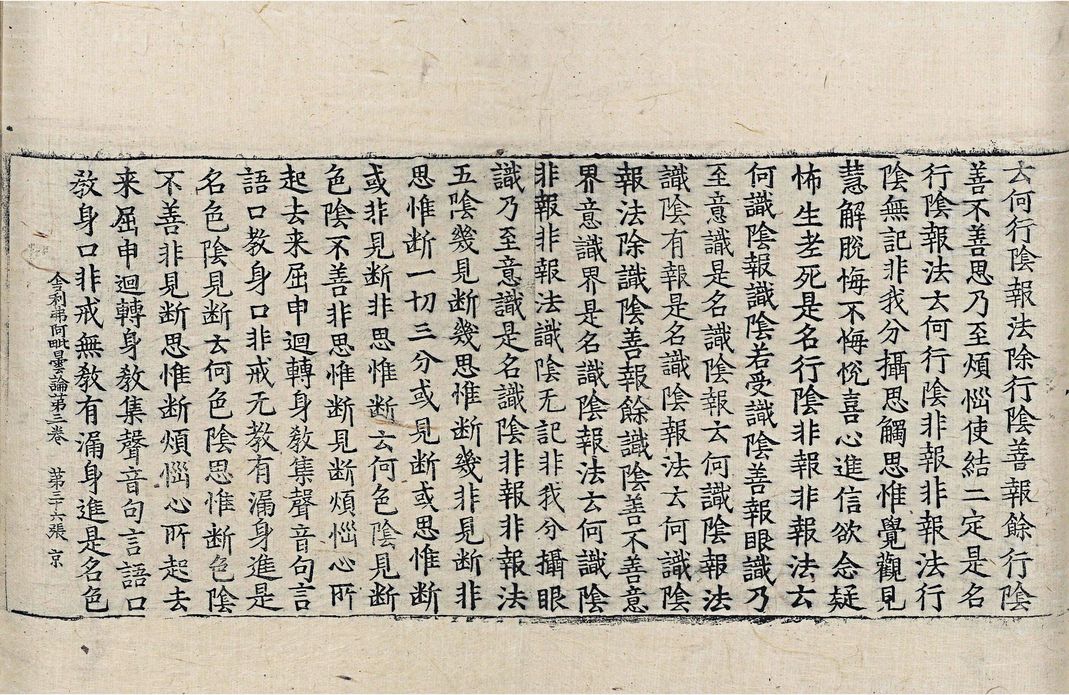 云何行陰報法除行陰善報餘行陰
善不善思乃至煩惱使結二定是名
行陰報法云何行陰非報非報法行
陰無記非我分攝思觸思惟覺觀見
慧解脫悔不悔悅喜心進信欲念疑
怖生老死是名行陰非報非報法云
何識陰報識陰若受識陰善報眼識乃
至意識是名識陰報云何識陰報法
識陰有報是名識陰報法云何識陰
報法除識陰善報餘識陰善不善意
界意識界是名識陰報法云何識陰
非報非報法識陰无記非我分攝眼
識乃至意識是名識陰非報非報法
五陰幾見断幾思惟断幾非見断非
思惟断一切三分或見断或思惟断
或非見断非思惟断云何色陰見断
色陰不善非思惟断見断煩惱心所
起去来屈申迴轉身教集聲音句言
語口教身口非戒无教有漏身進是
名色陰見断云何色陰思惟断色陰
不善非見断思惟断煩惱心所起去
来屈申迴轉身教集聲音句言語口
教身口非戒無教有漏身進是名色
舍利弗阿毗曇論第三卷 第三十六張 京